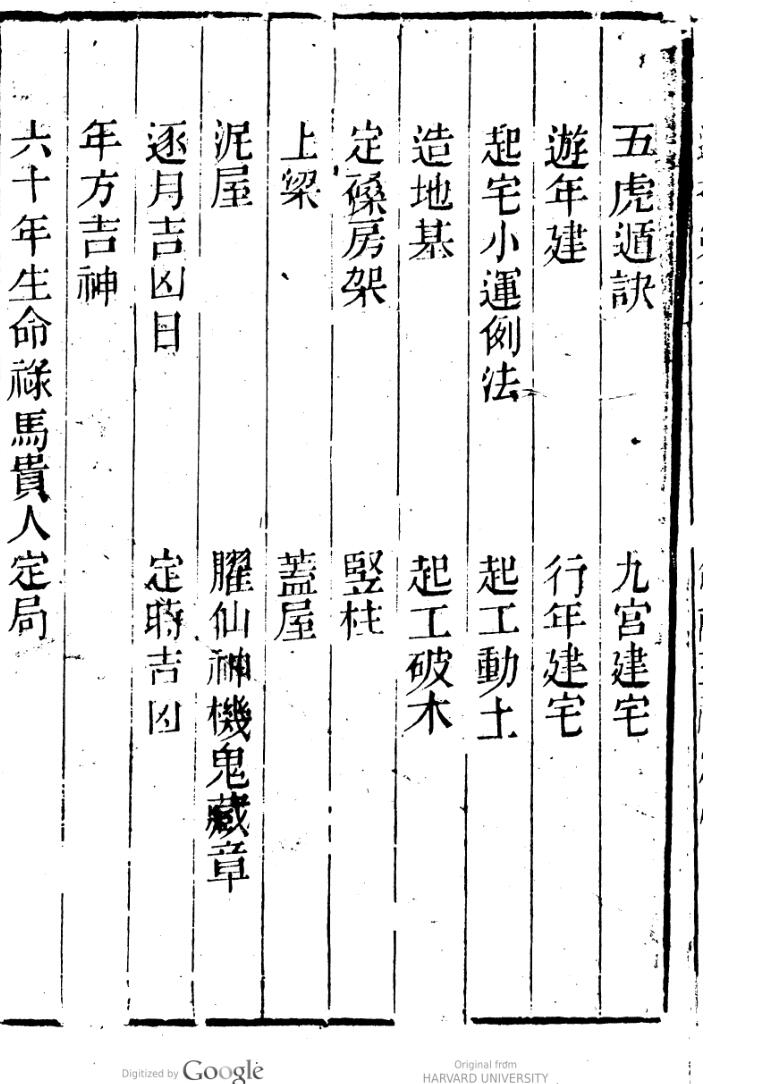 五虎遁訣　九宮建宅
遊年建　行年建宅
起宅小運例法　起工動土
造地基　起工破木
定磉房架　竪柱
上梁　蓋屋
泥屋　臞仙神機鬼藏章
逐月吉凶日　定時吉凶
年方吉神
六十年生命祿馬貴人定局
Digitized by Google
Original from
HARVARD UNIVERSITY